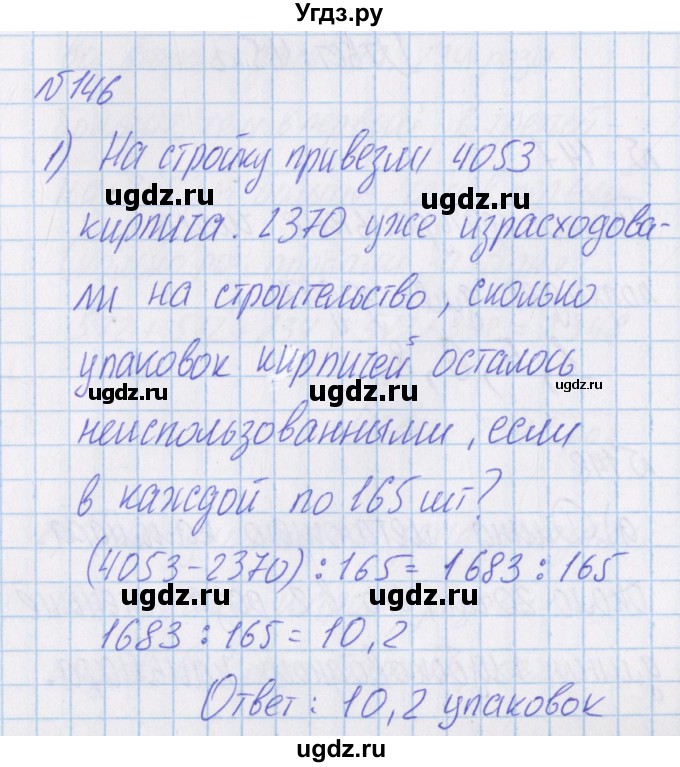 Угдз.ру
№146
1) На стройку привезли 4053
ugdz.ru
ugdz.ru
кирпича. 2370 уже израсходова-
ugdz.ru
ли на строительство, сколько
упаковок кирпичей осталось
ugdz.ru
ugdz.ru
ugdz.ru
неиспользованными, если
в каждой по 165 шт?
(4053-2370) : 165 = 1683 : 165
ugdz.ru
ugdz.ru
1683 : 165 = 10,2
Ответ: 10,2 упаковок
ugdz.ru
ugdz.ru